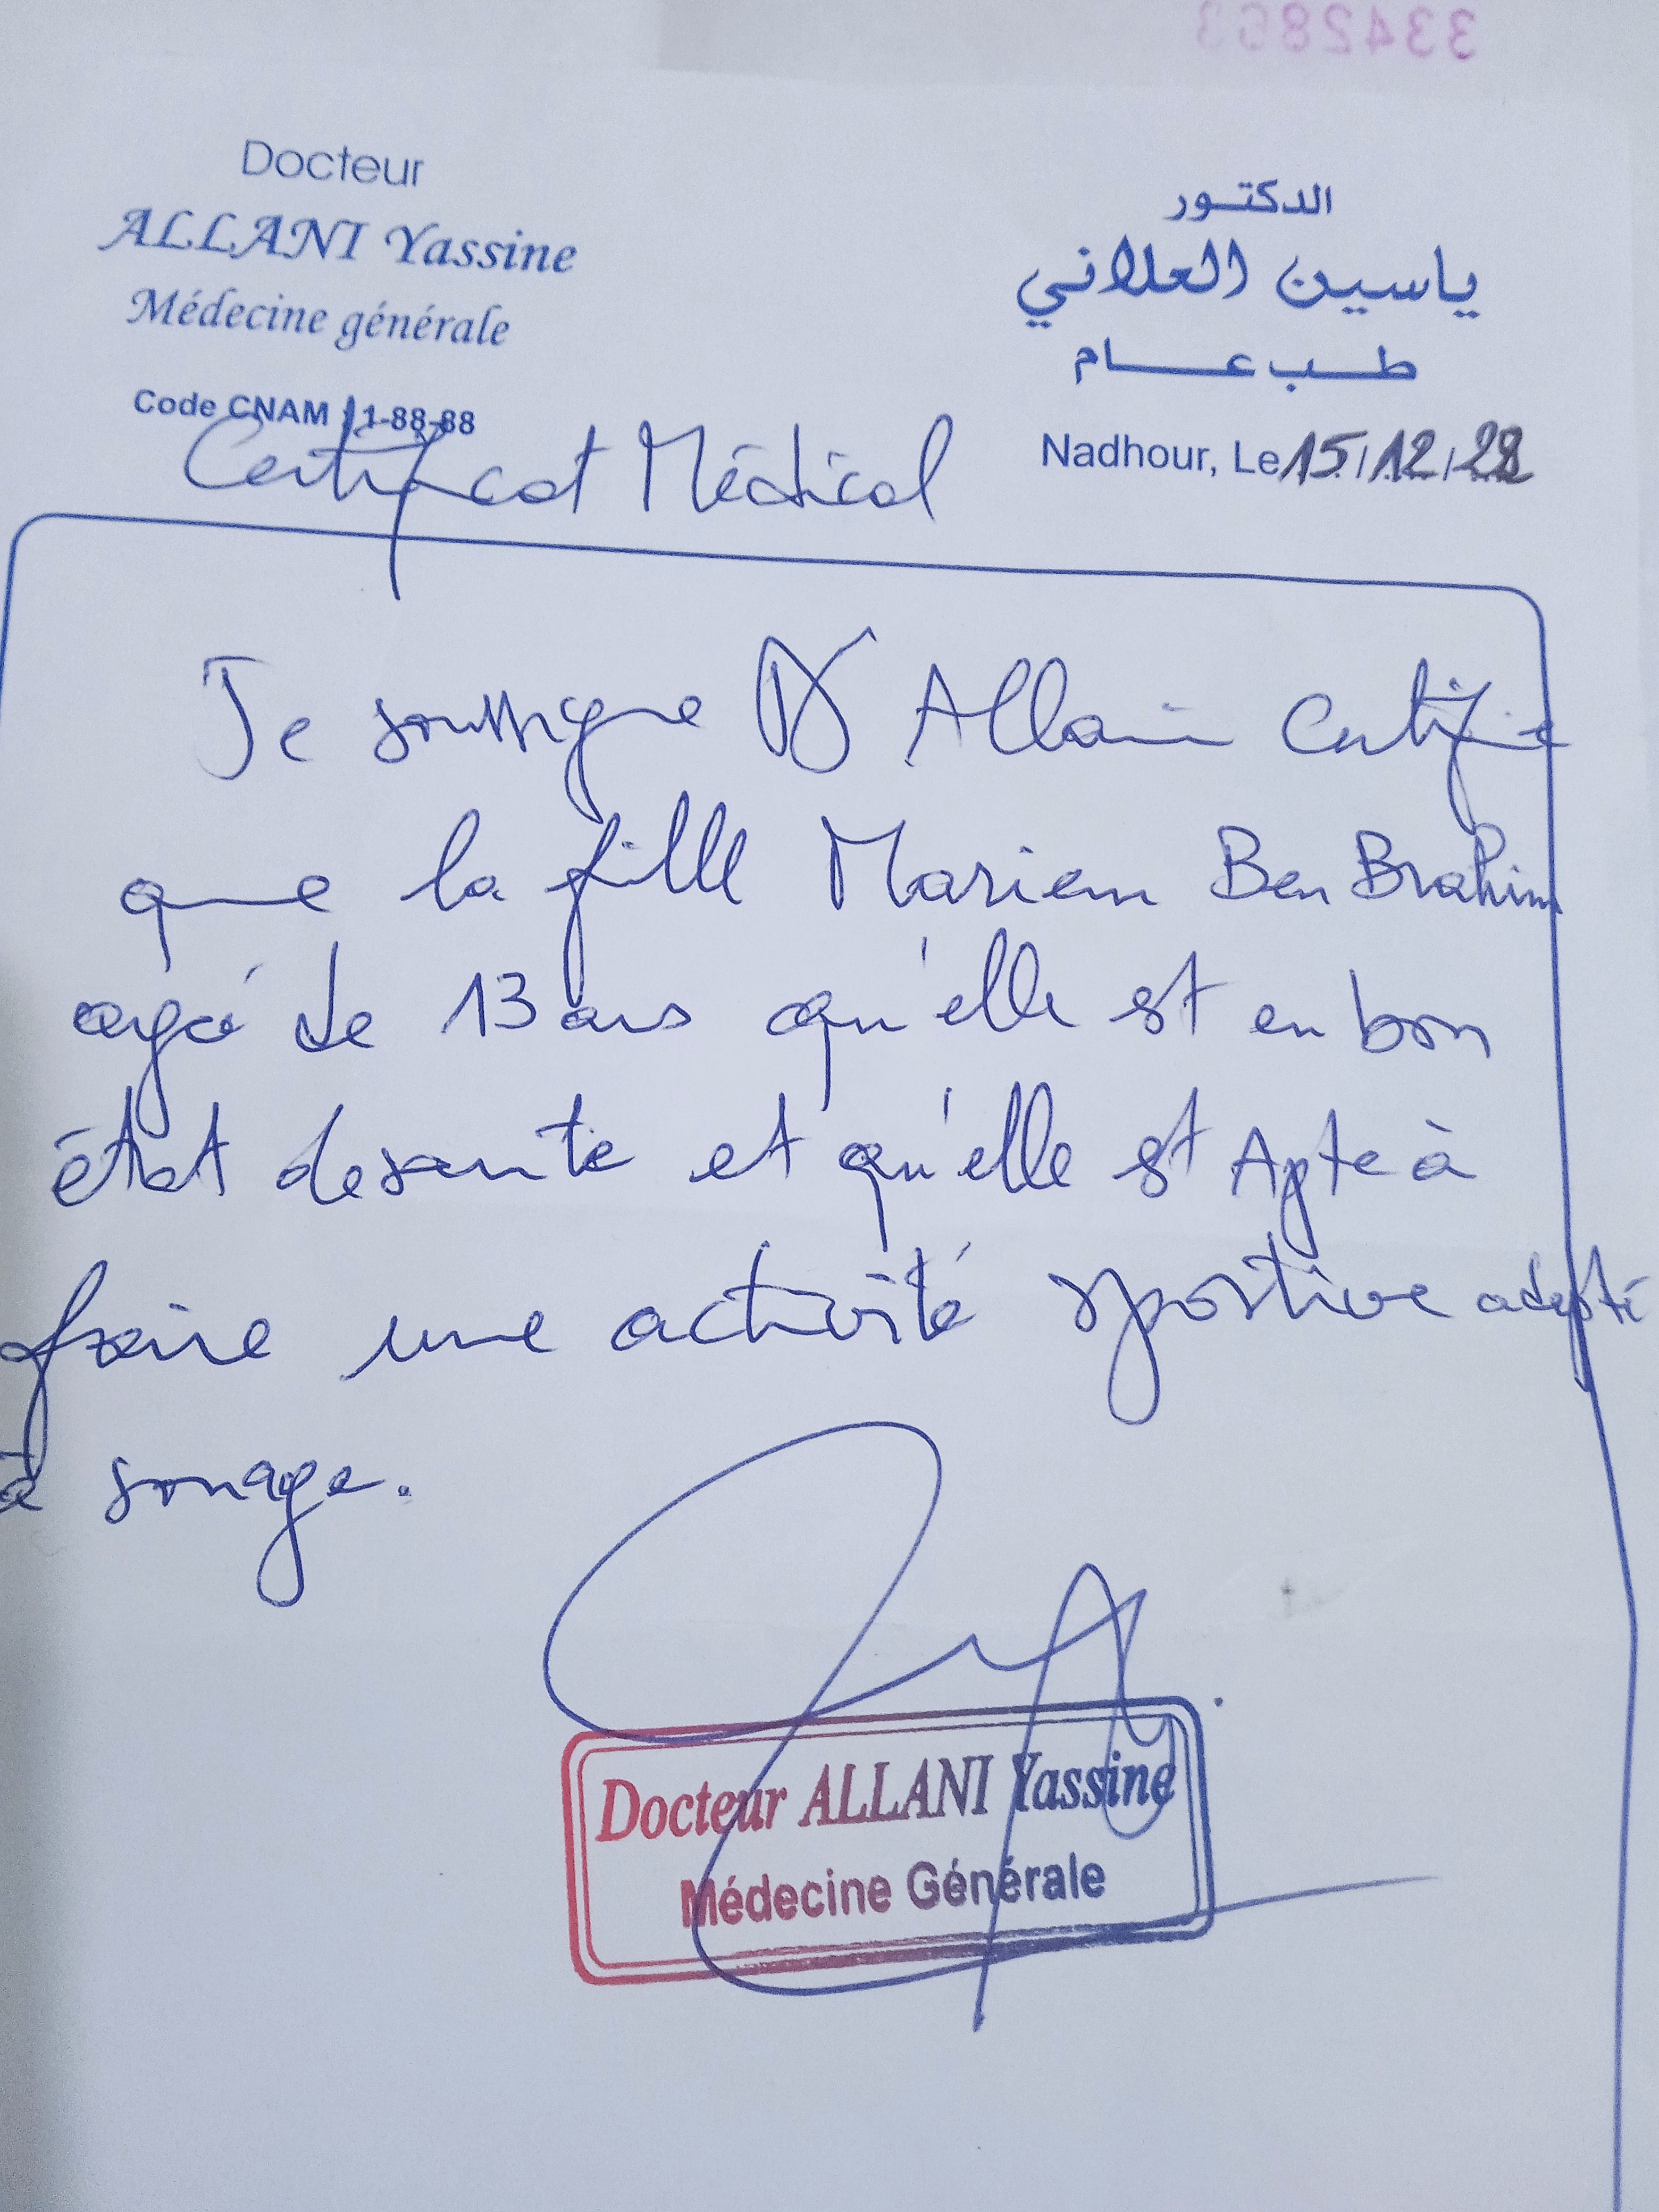 3342863
Docteur
ALLANI Yassine
Médecine générale
Code CNAM : 1-88-88
الدكتور
ياسين العلاني
طب عام
Nadhour, Le 15/12/28
Certificat Médical
Je soussigne Dr Allani Certifie
que la fille Mariem Ben Brahim
agé de 13 ans qu'elle est en bon
état de sante et qu'elle est Apte à
faire une activité sportive adapté
à son age.
Docteur ALLANI Yassine
Médecine Générale